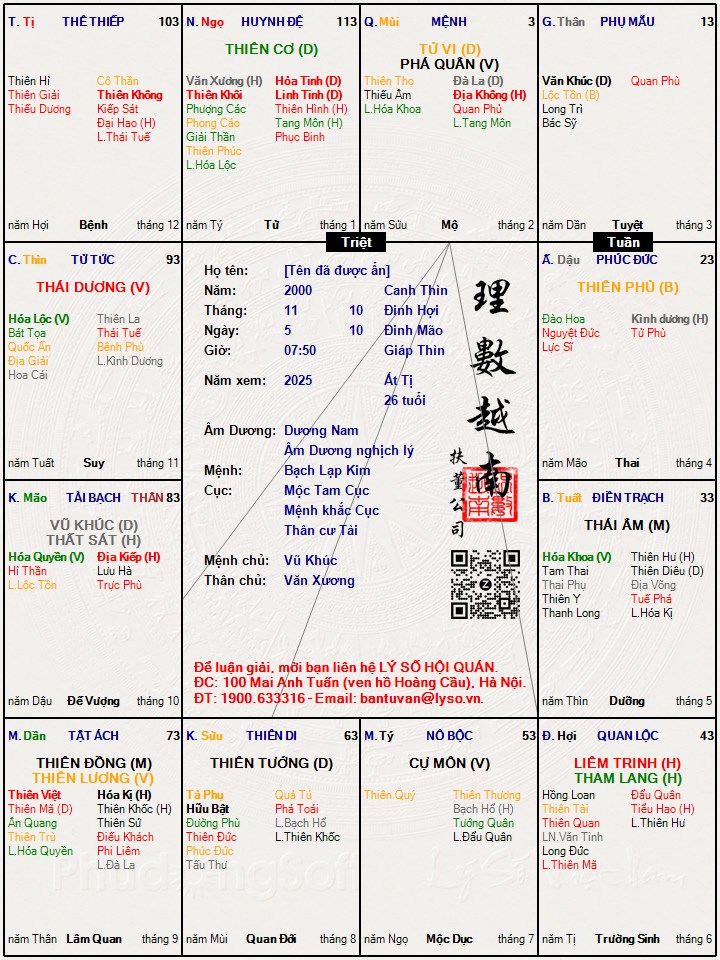 T. Tị THÊ THIẾP 103
Thiên Hỉ Cô Thần
Thiên Giải Thiên Không
Thiếu Dương Kiếp Sát
Đại Hao (H)
L.Thái Tuế
năm Hợi Bệnh tháng 12
N. Ngọ HUYNH ĐỆ 113
THIÊN CƠ (D)
Văn Xương (H) Hỏa Tinh (D)
Thiên Khôi Linh Tinh (D)
Phượng Các Thiên Hình (H)
Phong Cáo Tang Môn (H)
Giải Thần Phục Binh
Thiên Phúc
L.Hóa Lộc
năm Tý Tử tháng 1
Q. Mùi MỆNH 3
TỬ VI (D)
PHÁ QUÂN (V)
Thiên Thọ Đà La (D)
Thiếu Âm Địa Không (H)
L.Hóa Khoa Quan Phủ
L.Tang Môn
năm Sửu Mộ tháng 2
G. Thân PHỤ MẪU 13
Văn Khúc (D) Quan Phù
Lộc Tồn (B)
Long Trì
Bác Sỹ
năm Dần Tuyệt tháng 3
Triệt
Tuần
C. Thìn TỬ TỨC 93
THÁI DƯƠNG (V)
Hóa Lộc (V) Thiên La
Bát Tọa Thái Tuế
Quốc Ấn Bệnh Phù
Địa Giải L.Kình Dương
Hoa Cái
năm Tuất Suy tháng 11
Họ tên: [Tên đã được ẩn]
Năm: 2000 Canh Thìn
Tháng: 11 10 Đinh Hợi
Ngày: 5 10 Đinh Mão
Giờ: 07:50 Giáp Thìn
Năm xem: 2025 Ất Tị
26 tuổi
Âm Dương: Dương Nam
Âm Dương nghịch lý
Mệnh: Bạch Lạp Kim
Cục: Mộc Tam Cục
Mệnh khắc Cục
Thân cư Tài
Mệnh chủ: Vũ Khúc
Thân chủ: Văn Xương
理數越南
扶董公司
Để luận giải, mời bạn liên hệ LÝ SỐ HỘI QUÁN.
ĐC: 100 Mai Anh Tuấn (ven hồ Hoàng Cầu), Hà Nội.
ĐT: 1900.633316 - Email: bantuvan@lyso.vn.
Ấ. Dậu PHÚC ĐỨC 23
THIÊN PHỦ (B)
Đào Hoa Kình dương (H)
Nguyệt Đức Tử Phù
Lực Sĩ
năm Mão Thai tháng 4
K. Mão TÀI BẠCH THÂN 83
VŨ KHÚC (D)
THẤT SÁT (H)
Hóa Quyền (V) Địa Kiếp (H)
Hỉ Thần Lưu Hà
L.Lộc Tồn Trực Phù
năm Dậu Đế Vượng tháng 10
B. Tuất ĐIỀN TRẠCH 33
THÁI ÂM (M)
Hóa Khoa (V) Thiên Hư (H)
Tam Thai Thiên Diêu (D)
Thai Phụ Địa Võng
Thiên Y Tuế Phá
Thanh Long L.Hóa Kị
năm Thìn Dưỡng tháng 5
M. Dần TẬT ÁCH 73
THIÊN ĐỒNG (M)
THIÊN LƯƠNG (V)
Thiên Việt Hóa Kị (H)
Thiên Mã (D) Thiên Khốc (H)
Ân Quang Thiên Sứ
Thiên Trù Điếu Khách
L.Hóa Quyền Phi Liêm
L.Đà La
năm Thân Lâm Quan tháng 9
K. Sửu THIÊN DI 63
THIÊN TƯỚNG (D)
Tả Phụ Quả Tú
Hữu Bật Phá Toái
Đường Phù L.Bạch Hổ
Thiên Đức L.Thiên Khốc
Phúc Đức
Tấu Thư
năm Mùi Quan Đới tháng 8
M. Tý NÔ BỘC 53
CỰ MÔN (V)
Thiên Quý Thiên Thương
Bạch Hổ (H)
Tướng Quân
L.Đẩu Quân
năm Ngọ Mộc Dục tháng 7
Đ. Hợi QUAN LỘC 43
LIÊM TRINH (H)
THAM LANG (H)
Hồng Loan Đẩu Quân
Thiên Tài Tiểu Hao (H)
Thiên Quan L.Thiên Hư
LN.Văn Tinh
Long Đức
L.Thiên Mã
năm Tị Trường Sinh tháng 6